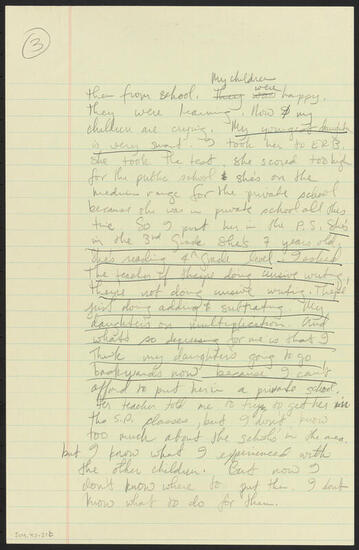 3
My children
them from school. They were happy.
they were learning. Now my
children are crying. My youngest daughter
is very smart. I took her to E.R.B.
She took the test. She scored too high
for the public school & she's on the
medium range for the private school
because she was in private school all this
time. So I put her in the P.S. She's
in the 3rd Grade She's 7 years old,
she's reading 4th Grade level. I asked
the teacher if they're doing cursive writing,
they're not doing cursive writing. They're
just doing adding & subtracting. My
daughters on multiplication. And
what's so depressing for me is that I
think my daughters going to go
backwards now because I can't
afford to put her in a private school.
Her teacher told me to try to get her in
the S.P. classes, but I don't know
too much about the schools in the area.
but I know what I experienced with
the other children. But now I
don't know where to put them. I don't
know what to do for them.